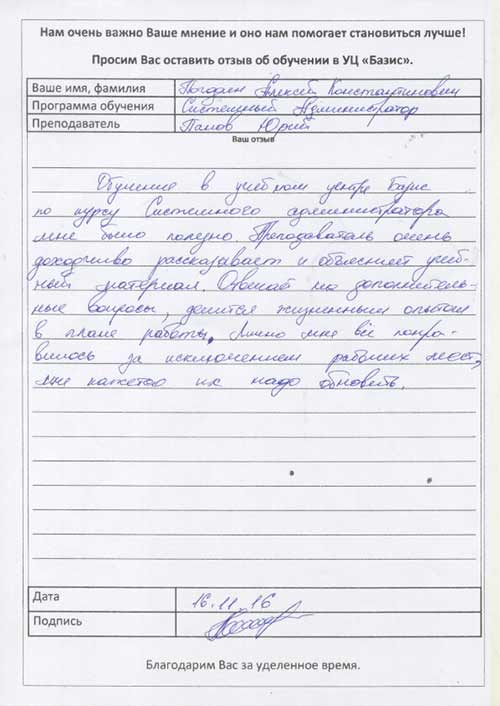 Нам очень важно Ваше мнение и оно нам помогает становиться лучше!
Просим Вас оставить отзыв об обучении в УЦ «Базис».
Ваше имя, фамилия Алексей Константинович
Программа обучения Системный Администратор
Преподаватель Панов Юрий
Ваш отзыв
Обучение в учебном центре Базис
по курсу Системного администратора
мне было полезно. Преподаватель очень
доходчиво рассказывает и объясняет учеб-
ный материал. Отвечает на дополнитель-
ные вопросы, делится жизненным опытом
в плане работы. Лично мне всё понра-
вилось за исключением рабочих мест,
мне кажется их надо обновить.
Дата 16.11.16
Подпись
Благодарим Вас за уделенное время.